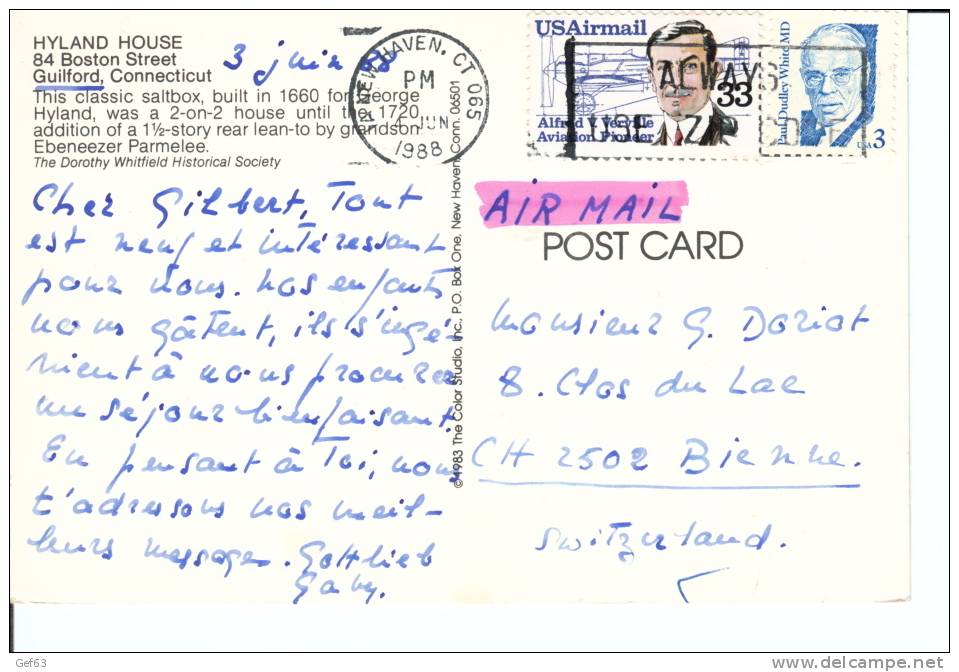 HYLAND HOUSE
84 Boston Street
Guilford, Connecticut
This classic saltbox, built in 1660 for George
Hyland, was a 2-on-2 house until the 1720
addition of a 1½-story rear lean-to by grandson
Ebeneezer Parmelee.
The Dorothy Whitfield Historical Society
3 juin 88
NEW HAVEN, CT 065
PM
JUN
1988
USAirmail
33
Alfred V. Verville
Aviation Pioneer
Paul Dudley White MD
USA 3
ALWAYS
USE ZIP CODE
Cher Gilbert, Tout
est neuf et intéressant
pour nous. nos enfants
nous gâtent, ils s'ingé-
nient à nous procurer
un séjour bienfaisant.
En pensant à Toi, nous
t'adressons nos meil-
leurs messages. Gottlieb
Gaby.
©1983 The Color Studio, Inc., P.O. Box One, New Haven, Conn. 06501
AIR MAIL
POST CARD
Monsieur G. Doriot
8. Clos du Lac
CH 2502 Bienne.
Switzerland.
Gef63
www.delcampe.net